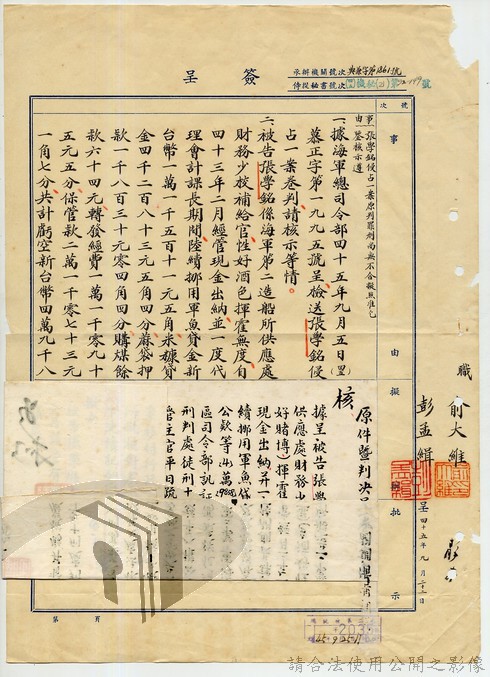 簽呈
承辦機關號次
侍從秘書號次
號
號次
事由擬
批示
事由
張學銘侵占一案原判罪刑尚無不合擬照准乞
鑒核示遵
一、據海軍總司令部四十五年九月五日(44)
慕正字第一九九五號呈、檢送張學銘侵
占一案卷判請核示等情。
二、被告張學銘係海軍第二造船所供應處
財務少校補給官性好酒色揮霍無度自
四十三年二月經管現金出納並一度代
理會計課長期間陸續挪用軍魚貸金新
台幣一萬一千五百十一元五角、米糠貸
金四千二百八十三元五角四分、麻袋押
款一千八百三十元零四角四分、購煤餘
款六十四元、轉發經費一萬一千零九十
五元五分、保管款二萬一千零七十三元
一角七分、共計虧空新台幣四萬九千八
職
俞大維
彭孟緝
呈
四十五年九月二十二日
核
原件暨判決
據呈被告張
供應處財務少
好賭博)揮霍
現金出納并一
續挪用軍魚貸
公款等(4萬
區司令部訊証
刑判處徒刑十
管主官平日疏
第 頁
45.9.25
請合法使用公開之影像